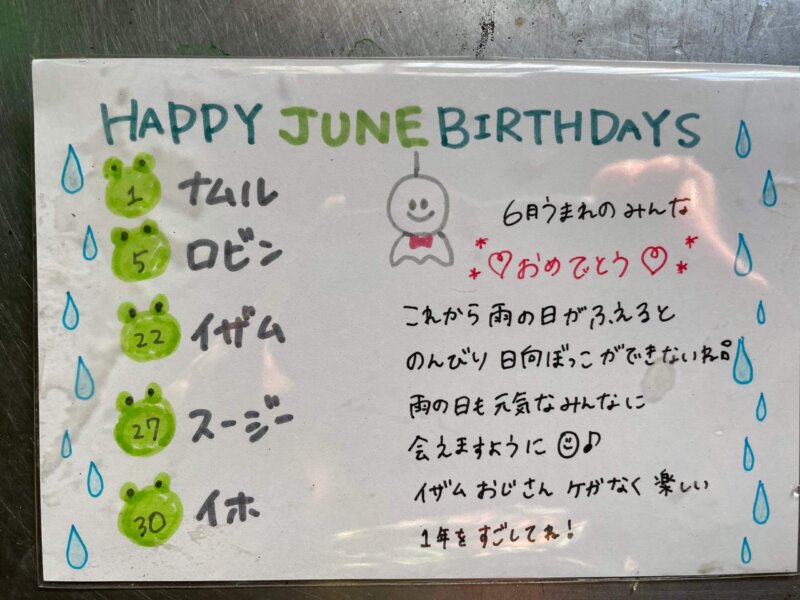 HAPPY JUNE BIRTHDAYS
1 ナムル
5 ロビン
22 イザム
27 スージー
30 イホ
6月うまれのみんな
*♡おめでとう♡*
これから雨の日がふえると
のんびり日向ぼっこができないね。
雨の日も元気なみんなに
会えますように☺♪
イザムおじさんケガなく楽しい
1年をすごしてね!